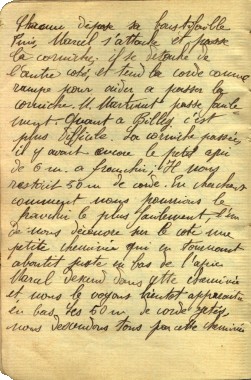 Chacune dépose sa
Puis Marcel s'attache et passe
la corniche, il se détache de
l'autre côté, et tend la corde comme
rampe pour aider à passer la
corniche. M. Martinet passe facile
ment. Quant à Gilly c'est
plus difficile. La corniche passée,
il y avait encore le petit à pic
de 6 m. à franchir. Il nous
restait 50 m de corde. En cherchant
comment nous pourrions le
franchir le plus facilement, l'un
de nous découvre sur le côté une
petite cheminée qui en tournant
aboutit juste en bas de l'à pic
Marcel descend dans cette cheminée
et nous le voyons bientôt apparaître
en bas. Les 50 m de corde
nous descendons tous par cette cheminée